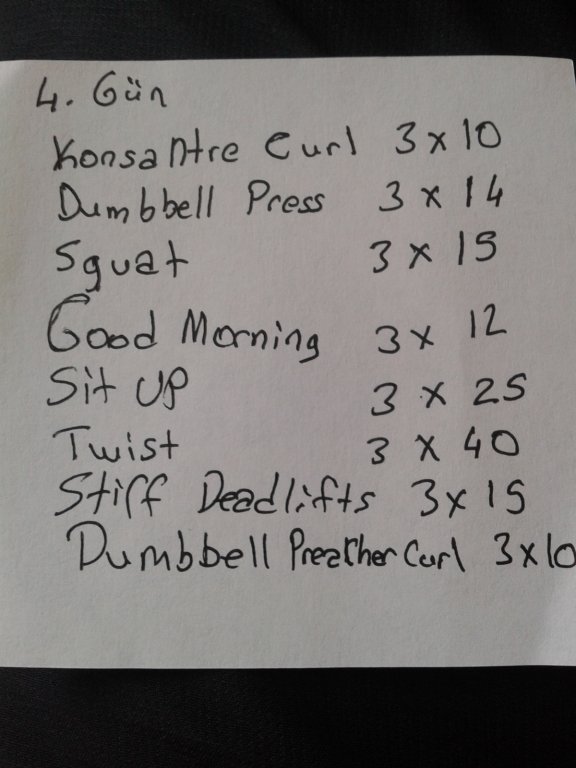 4. Gün
Konsantre Curl 3 x 10
Dumbbell Press 3 x 14
Squat 3 x 15
Good Morning 3 x 12
Sit UP 3 x 25
Twist 3 x 40
Stiff Deadlifts 3 x 15
Dumbbell Preacher Curl 3 x 10